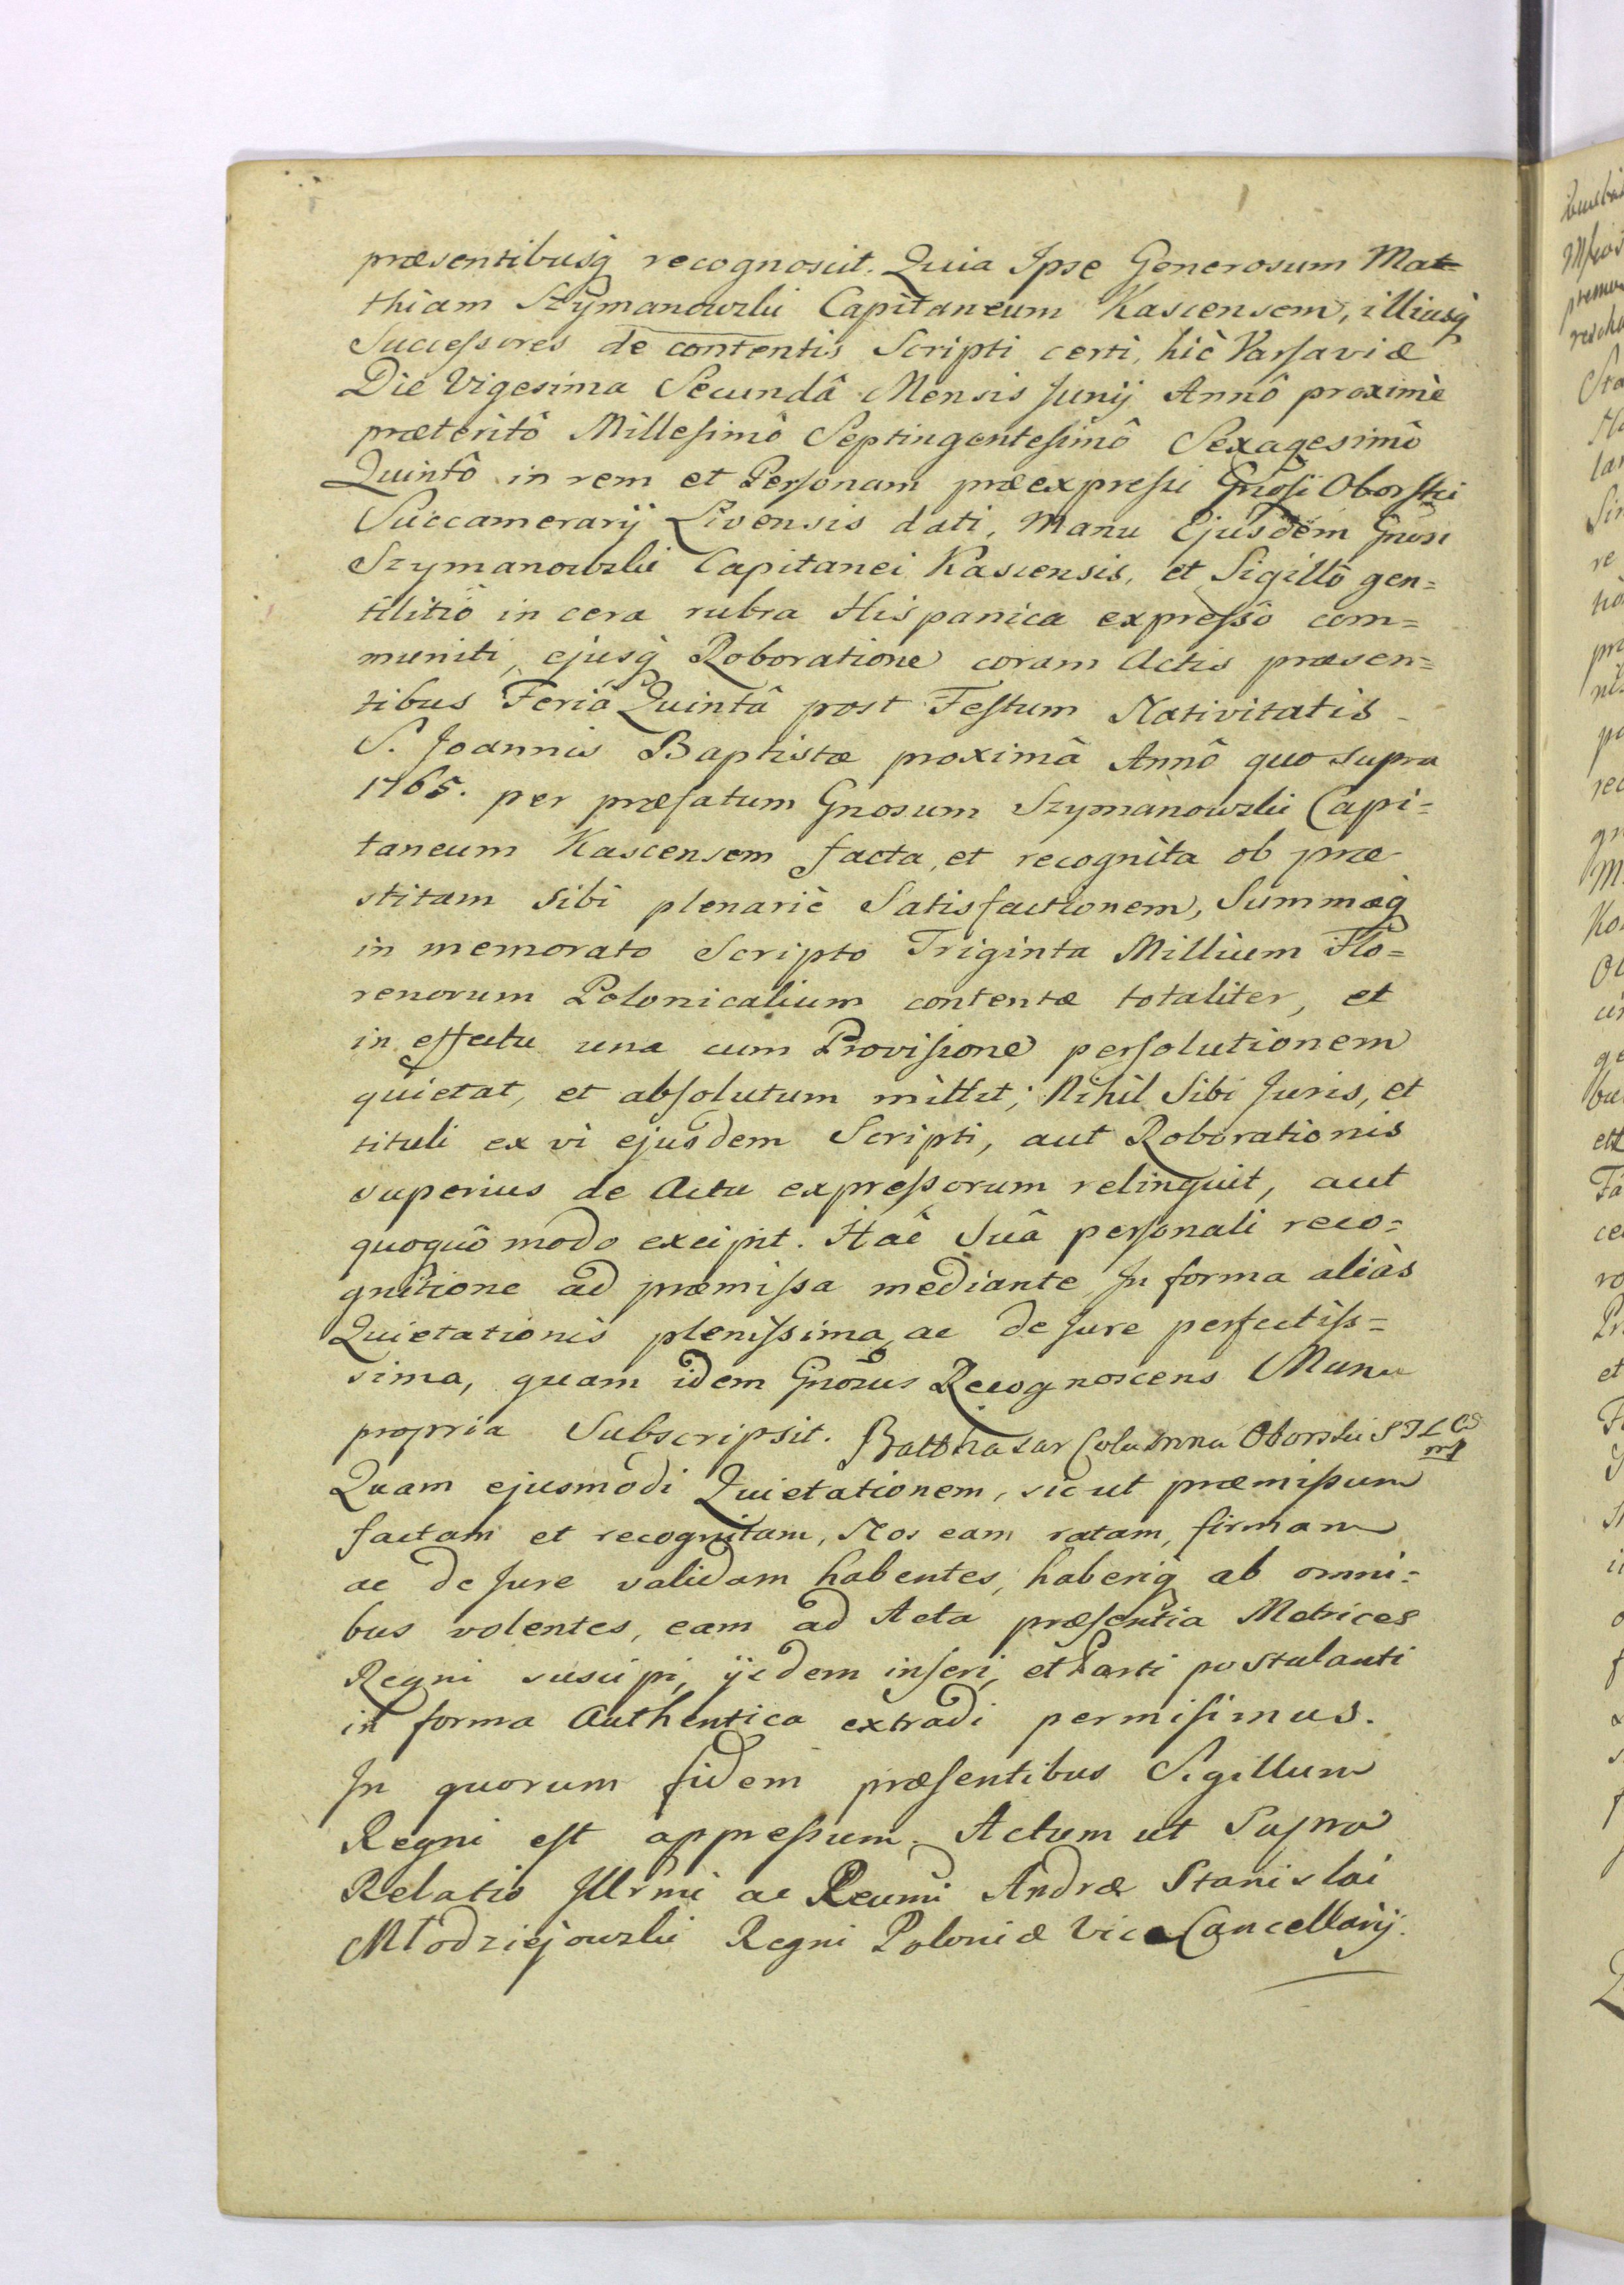 præsentibusq recognoscit. Quia Ipse Generosum Mat=
thiam Szymanowski Capitaneum Kascensem, illiusq
Successores de contentis Scripti certi, hic Varsaviæ
Die Vigesima Secundâ Mensis Junij Annô proximè
præteritô Millesimô Septingentesimô Sexagesimô
Quintô in rem et Personam præexpressi Gnosi Oborski
Succamerarij Livensis dati, Manu Ejusdem Gnosi
Szymanowski Capitanei Kascensis, et Sigillô gen=
tilitiô in cera rubra Hispanica expressô com=
muniti, ejusq Roboratione coram Actis præsen=
tibus Feriâ Quintâ post Festum Nativitatis
S. Joannis Baptistæ proximâ Annô quo supra
1765. per præfatum Gnosum Szymanowski Capi=
taneum Kascensem facta, et recognita ob præ
stitam sibi plenariè Satisfactionem, Summæq
in memorato Scripto Triginta Millium Flo=
renorum Polonicalium contentæ totaliter, et
in effectu una cum Provisione persolutionem
quietat, et absolutum mittit; Nihil Sibi Juris, et
tituli ex vi ejusdem Scripti, aut Roborationis
superius de Actu expressorum relinquit, aut
quoquô modo excipit. Hac Suâ personali reco=
gnitione ad præmissa mediante, In forma aliàs
Quietationis plenissima, ac de Jure perfectiss=
sima, quam idem Gnosus Recognoscens Manu
propria Subscripsit. Balthasar Columna Oborski S T L
mp
Quam ejusmodi Quietationem, sicut præmissum
factam et recognitam, Nos eam ratam, firmam
ac de Jure validam habentes, haberiq ab omni=
bus volentes, eam ad Acta præsentia Metrices
Regni suscipi, ijsdem inseri, et Parti postulanti
in forma Authentica extradi permisimus.
In quorum fidem præsentibus Sigillum
Regni est appressum. Actum ut Supra
Relatio Illrmi ac Reumi Andræ Stanislai
Młodziejowski Regni Poloniæ Vice Cancellarij.